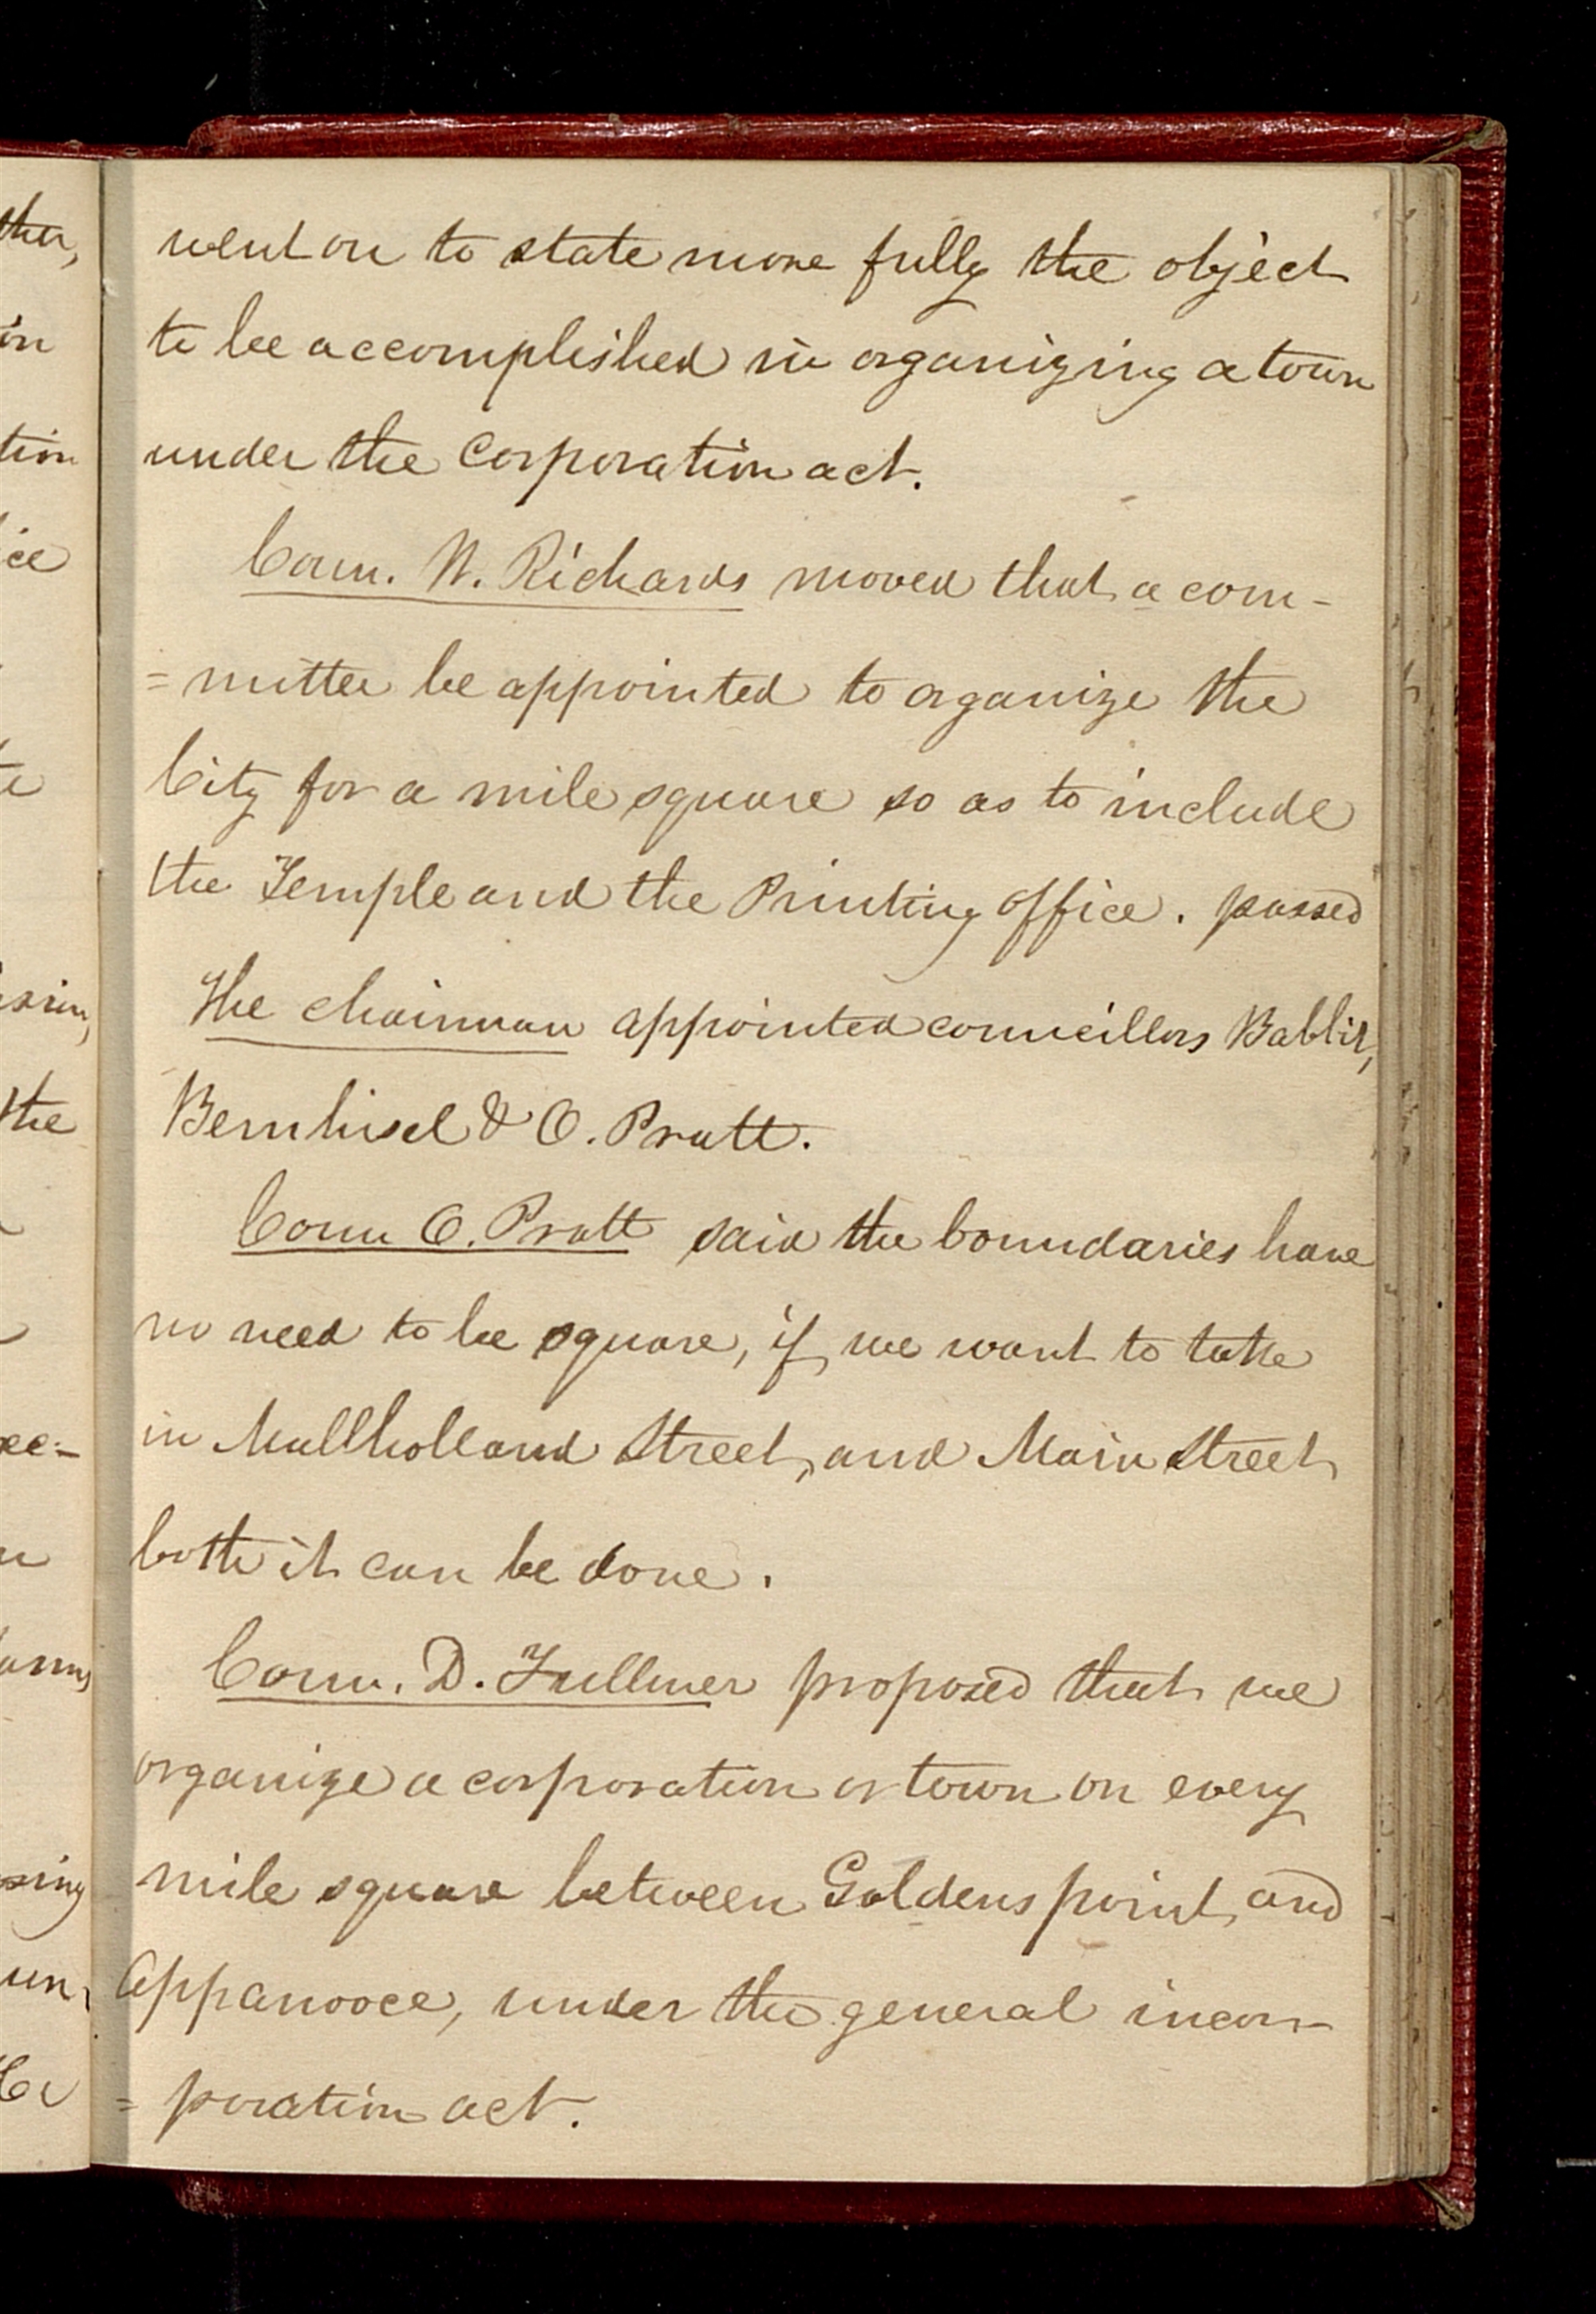 went on to state more fully the object
to be accomplished in organizing a town
under the Corporation act.
Coun. W. Richards moved that a com-
=mittee be appointed to organize the
City for a mile square so as to include
the Temple and the Printing office. passed
The chairman appointed councillors Babbit,
Bernhisel & O. Pratt.
Coun O. Pratt said the boundaries have
no need to be square, if we want to take
in Mullholland Street, and Main Street
both it can be done.
Coun. D. Fullmer proposed that we
organize a corporation or town on every
mile square between Goldens point, and
Appanooce, under the general incor-
=poration act.